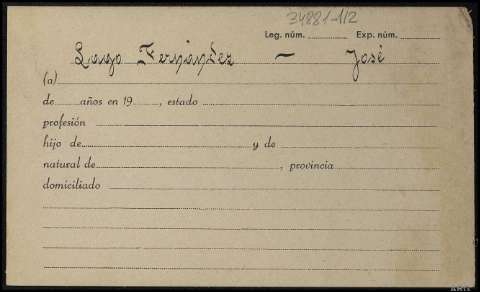 34881-1/2
Leg. núm. Exp. núm.
Lago Fernández — José
(a)
de años en 19 , estado
profesión
hijo de y de
natural de , provincia
domiciliado